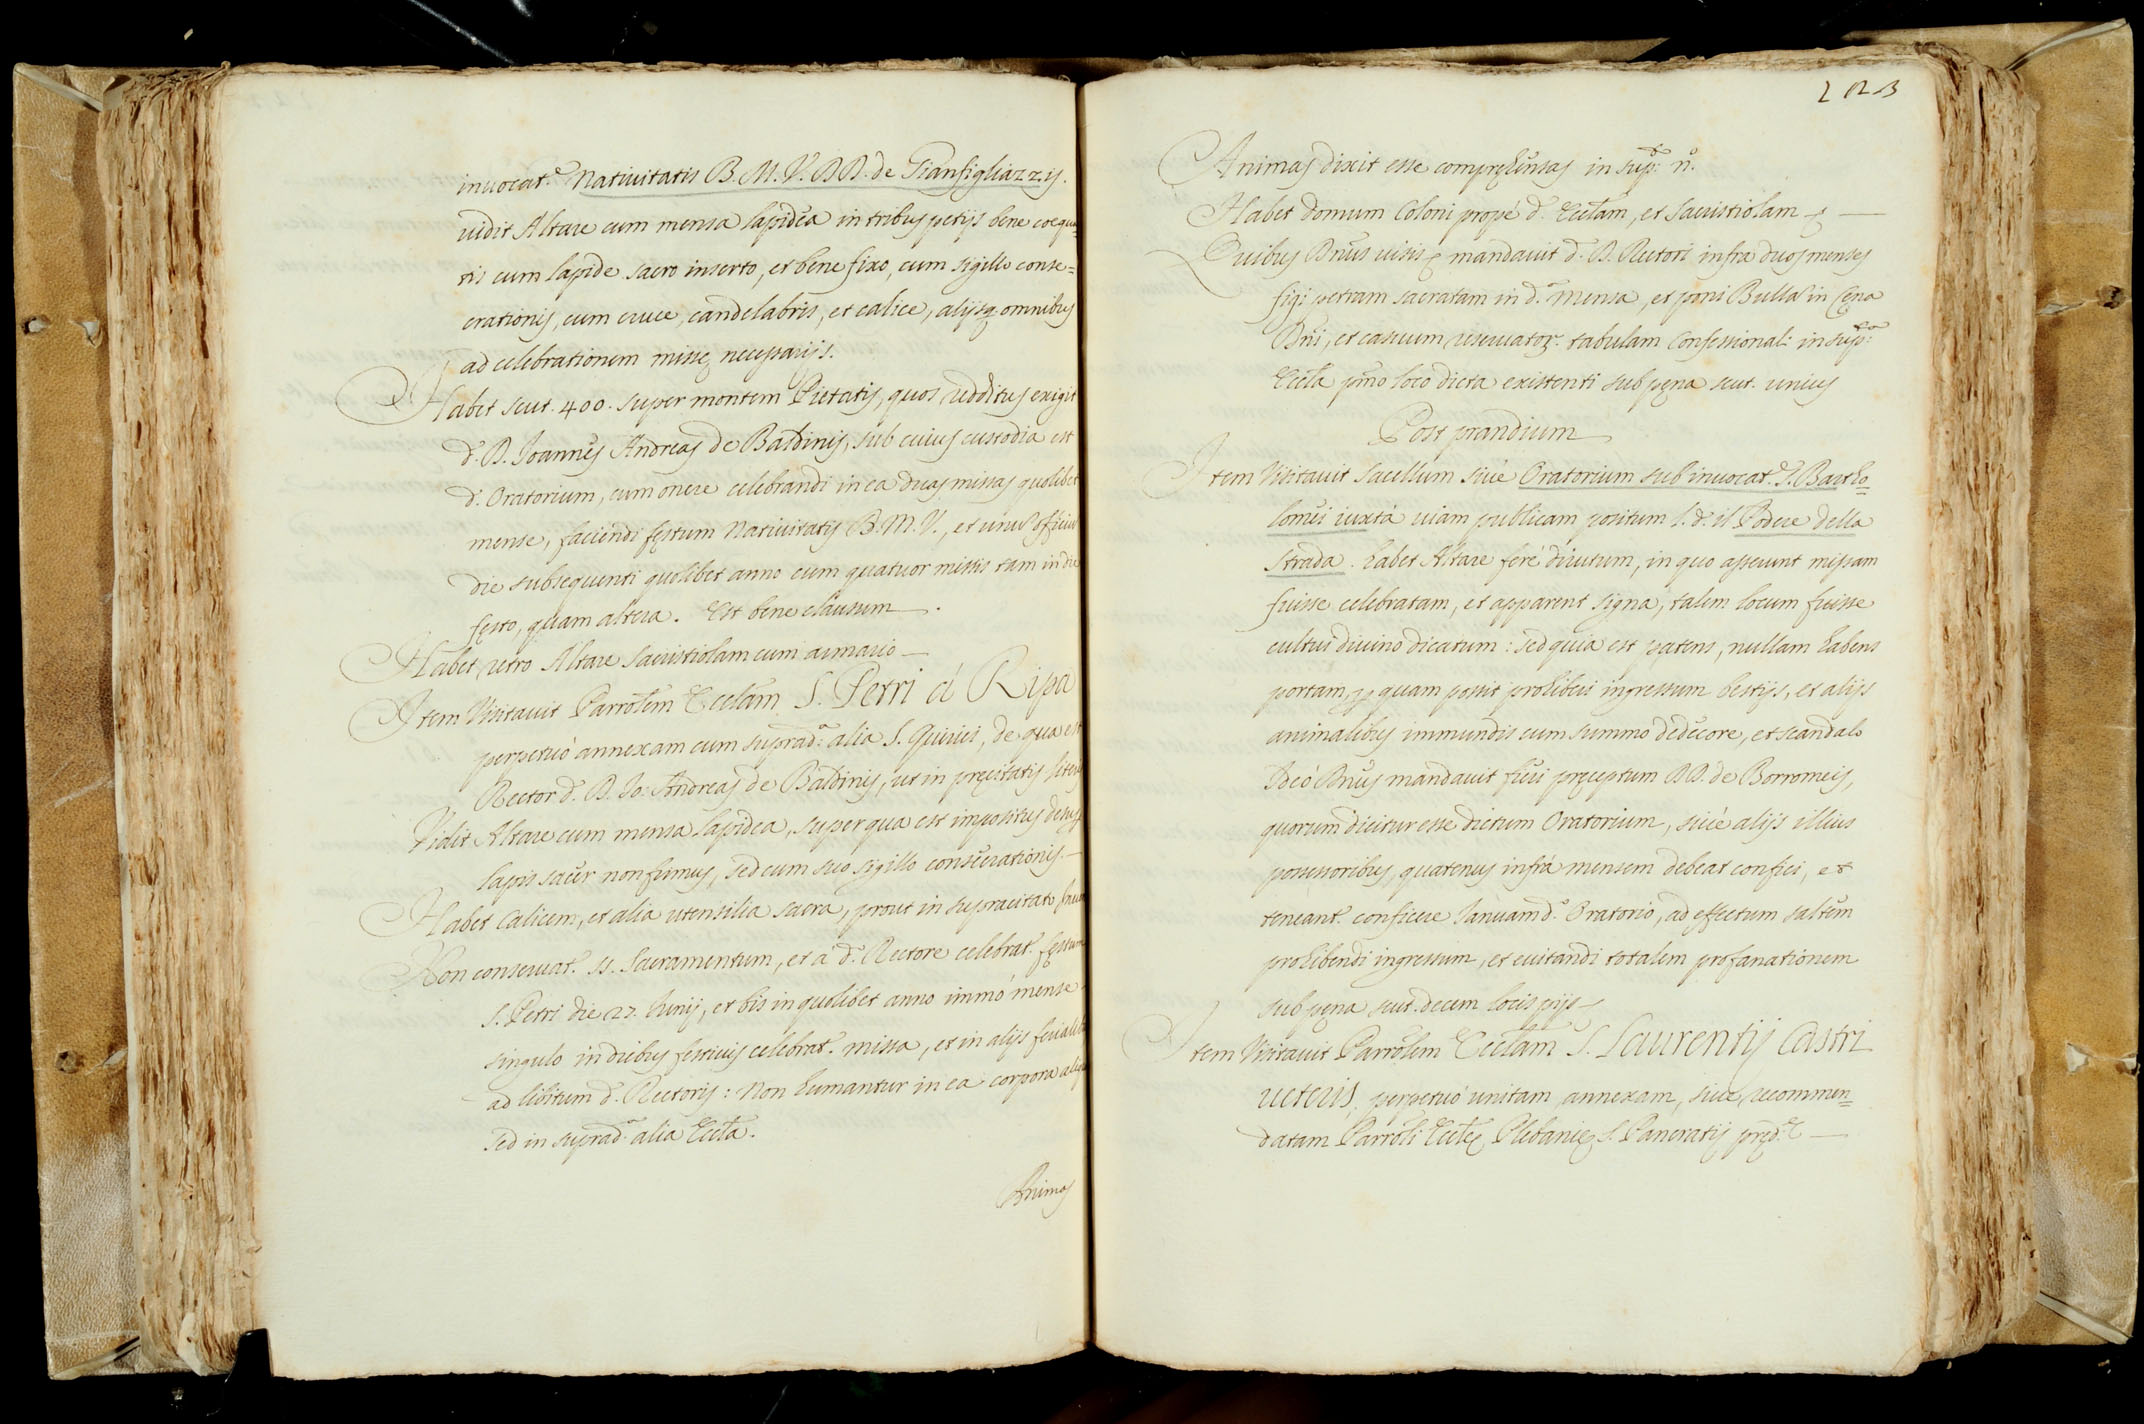 inuocat.e Natiuitatis B. M. V. DD. de Gianfigliazzijs.
uidit Altare cum mensa lapidea in tribus petijs bene coequa
tis cum lapide sacro inserto, et bene fixo, cum sigillo conse=
crationis, cum cruce, candelabris, et calice, alijsq. omnibus
ad celebrationem missę necessarijs.
Habet scut. 400. super montem Pietatis, quos redditus exigit
d. D. Joannes Andreas de Baldinis, sub cuius custodia est
d. Oratorium, cum onere celebrandi in ea duas missas quolibet
mense, faciendi fęstum Natiuitatis B. M. V., et unu officiu
die subsequenti quolibet anno cum quatuor missis tam in die
fęsto, quam altera. Est bene clausum.
Habet retro Altare sacristiolam cum armario
Item Visitauit Parrolem Ecclam S. Petri à Ripa
perpetuò annexam cum suprad.a alia S. Quirici, de qua est
Rector d. D. Jo: Andreas de Baldinis, ut in pręcitatis literis
Vidit Altare cum mensa lapidea, super qua est impositus
lapis sacer non firmus, sed cum suo sigillo consecrationis.
Habet Calicem, et alia utensilia sacra, prout in supracitato
Non conseruat. SS. Sacramentum, et à d. Rectore celebrat. fęstum
S. Petri die 27. Junij, et bis in quolibet anno immò mense
singulo in diebus festiuis celebrat. missa, et in alijs ferialib
ad libitum d. Rectoris: Non humantur in ea corpora aliqua
sed in suprad.a alia Eccla.
Animas
223
Animas dixit esse compręhensas in sup.to n.o
Habet domum Coloni propé d. Ecclam, et Sacristiolam
Quibus Dnus uisis mandauit d. D. Rectori infra duos menses
figi petram sacratam in d.a mensa, et poni Bulla in Cena
Dni, et casuum reseruator. tabulam Confessional: in sup.ta
Eccla pmo loco dicta existenti sub pęna scut. unius
Post prandium
Item Visitauit Sacellum siuè Oratorium sub inuocat.e S. Bartho
lomei iuxtà uiam publicam positum l. d. il Podere della
Strada. habet Altare ferè dirutum, in quo asserunt missam
fuisse celebratam, et apparent signa, talem locum fuisse
cultui diuino dicatum: sed quia est patens, nullam habens
portam, p quam possit prohiberi ingressum bestijs, et alijs
animalibus immundis cum summo dedecore, et scandalo
Ideò Dnus mandauit fieri pręceptum DD. de Borromeis,
quorum dicitur esse dictum Oratorium, siuè alijs illius
possessoribus, quatenus infrà mensem debeat confici, et
teneant. conficere Januam d.o Oratorio, ad effectum saltem
prohibendi ingressum, et euitandi totalem profanationem
sub pęna scut. decem locis pijs
Item Visitauit Parrolem Ecclam S. Laurentij Castri
ueteris, perpetuò unitam annexam, siue recommen=
datam Parroli Ecclę Plebanię S. Pancratij pręd.e